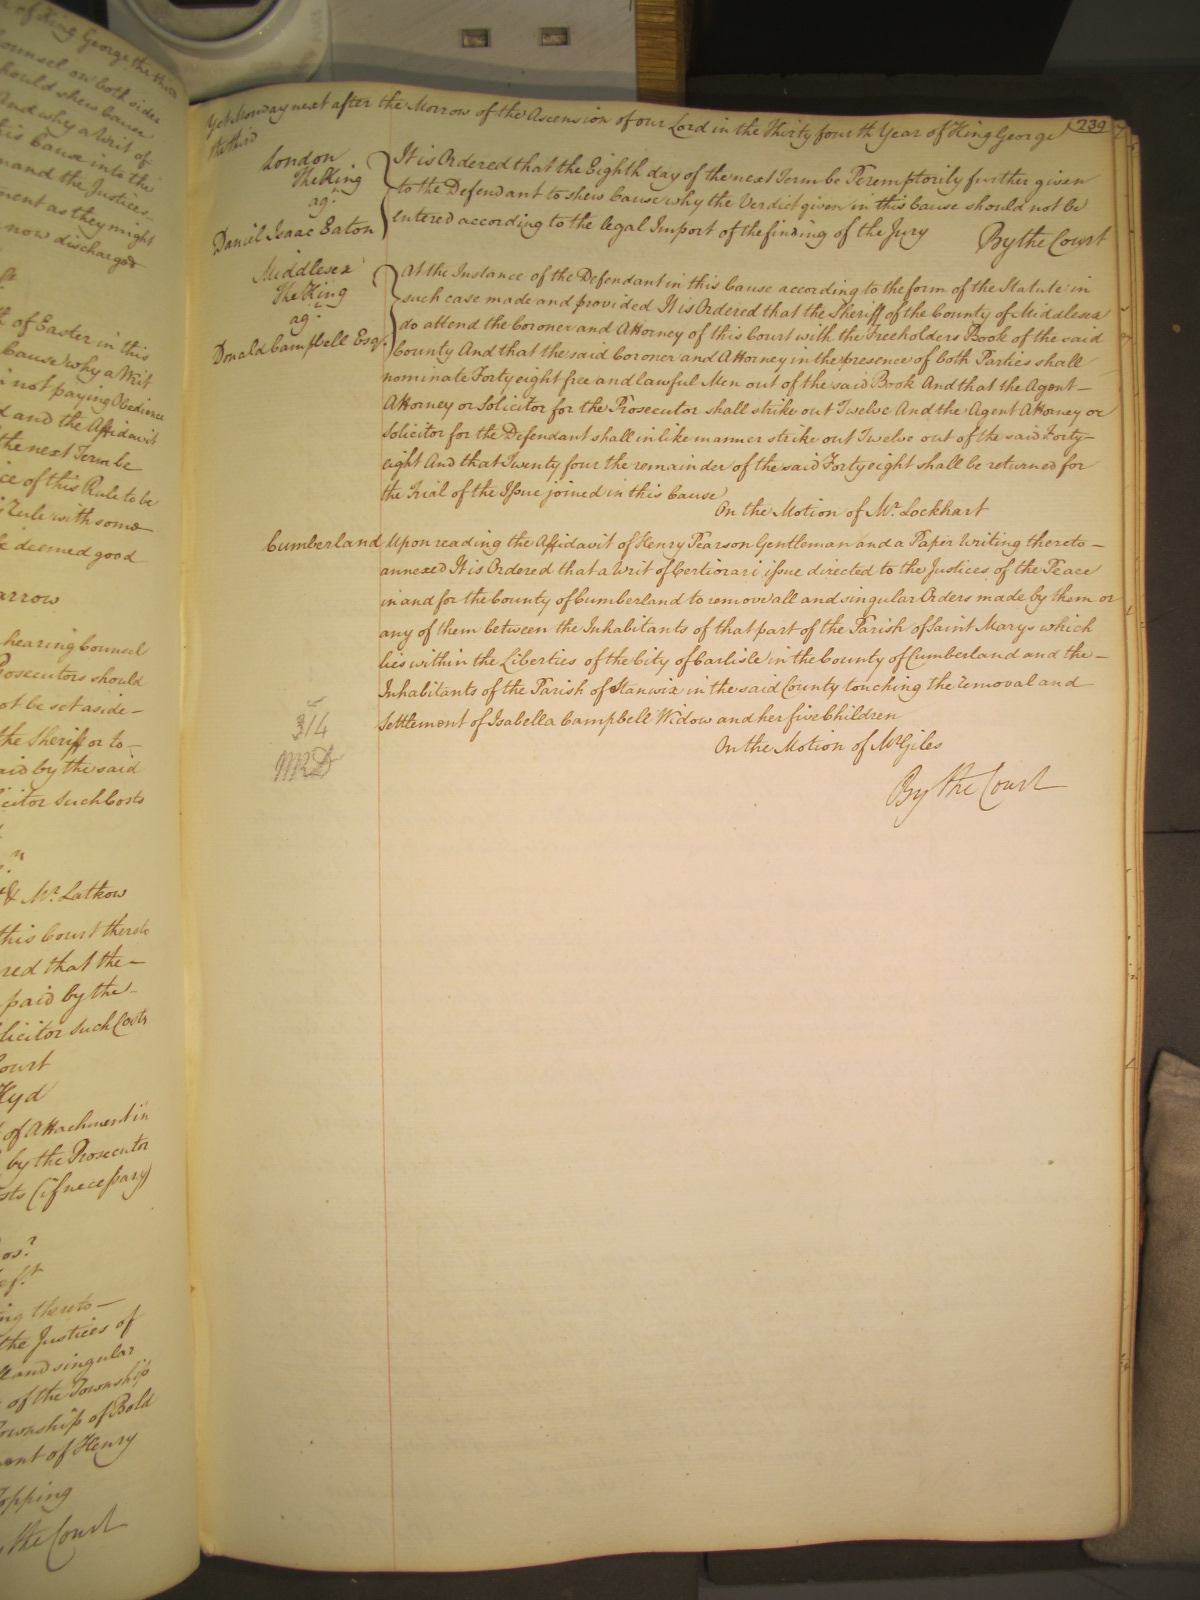 of King George the third
Counsel on both sides
should shew cause
And why a Writ of
this Cause into the
mand the Justices
ment as they might
now discharged
of Easter in this
Cause why a Writ
not paying Obedience
d and the Affidavit
the next Term be
ce of this Rule to be
Rule with some
be deemed good
arrow
hearing Counsel
Prosecutors should
ot be set aside
the Sheriff or to
aid by the said
icitor such Costs
& Mr. Latkow
this Court thereto
red that the
paid by the
licitor such Costs
Court
Kyd
of Attachment in
by the Prosecutor
sts (if necessary)
ing thereto
the Justices of
ll and singular
of the Township
Township of Bold
ent of Henry
Topping
the Court
Yet Monday next after the Morrow of the Ascension of our Lord in the Thirty fourth Year of King George 239
the third
London
The King
agt
Daniel Isaac Eaton
It is Ordered that the Eighth day of the next Term be Peremptorily further given
to the Defendant to shew Cause why the Verdict given in this Cause should not be
entered according to the legal Import of the finding of the Jury By the Court
Middlesex
The King
agt
Donald Campbell Esqr.
At the Instance of the Defendant in this Cause according to the form of the Statute in
such case made and provided It is Ordered that the Sheriff of the County of Middlesex
do attend the Coroner and Attorney of this Court with the Freeholders Book of the said
County And that the said Coroner and Attorney in the presence of both Parties shall
nominate Forty eight free and lawful Men out of the said Book And that the Agent
Attorney or Solicitor for the Prosecutor shall strike out Twelve And the Agent Attorney or
Solicitor for the Defendant shall in like manner strike out Twelve out of the said Forty
eight And that Twenty four the remainder of the said Forty eight shall be returned for
the Trial of the Issue joined in this Cause
On the Motion of Mr. Lockhart
Cumberland Upon reading the Affidavit of Henry Pearson Gentleman and a Paper Writing thereto
annexed It is Ordered that a Writ of Certiorari issue directed to the Justices of the Peace
in and for the County of Cumberland to remove all and singular Orders made by them or
any of them between the Inhabitants of that part of the Parish of Saint Marys which
lies within the Liberties of the City of Carlisle in the County of Cumberland and the
Inhabitants of the Parish of Stanwix in the said County touching the removal and
Settlement of Isabella Campbell Widow and her five Children
On the Motion of Mr Giles
By the Court
314